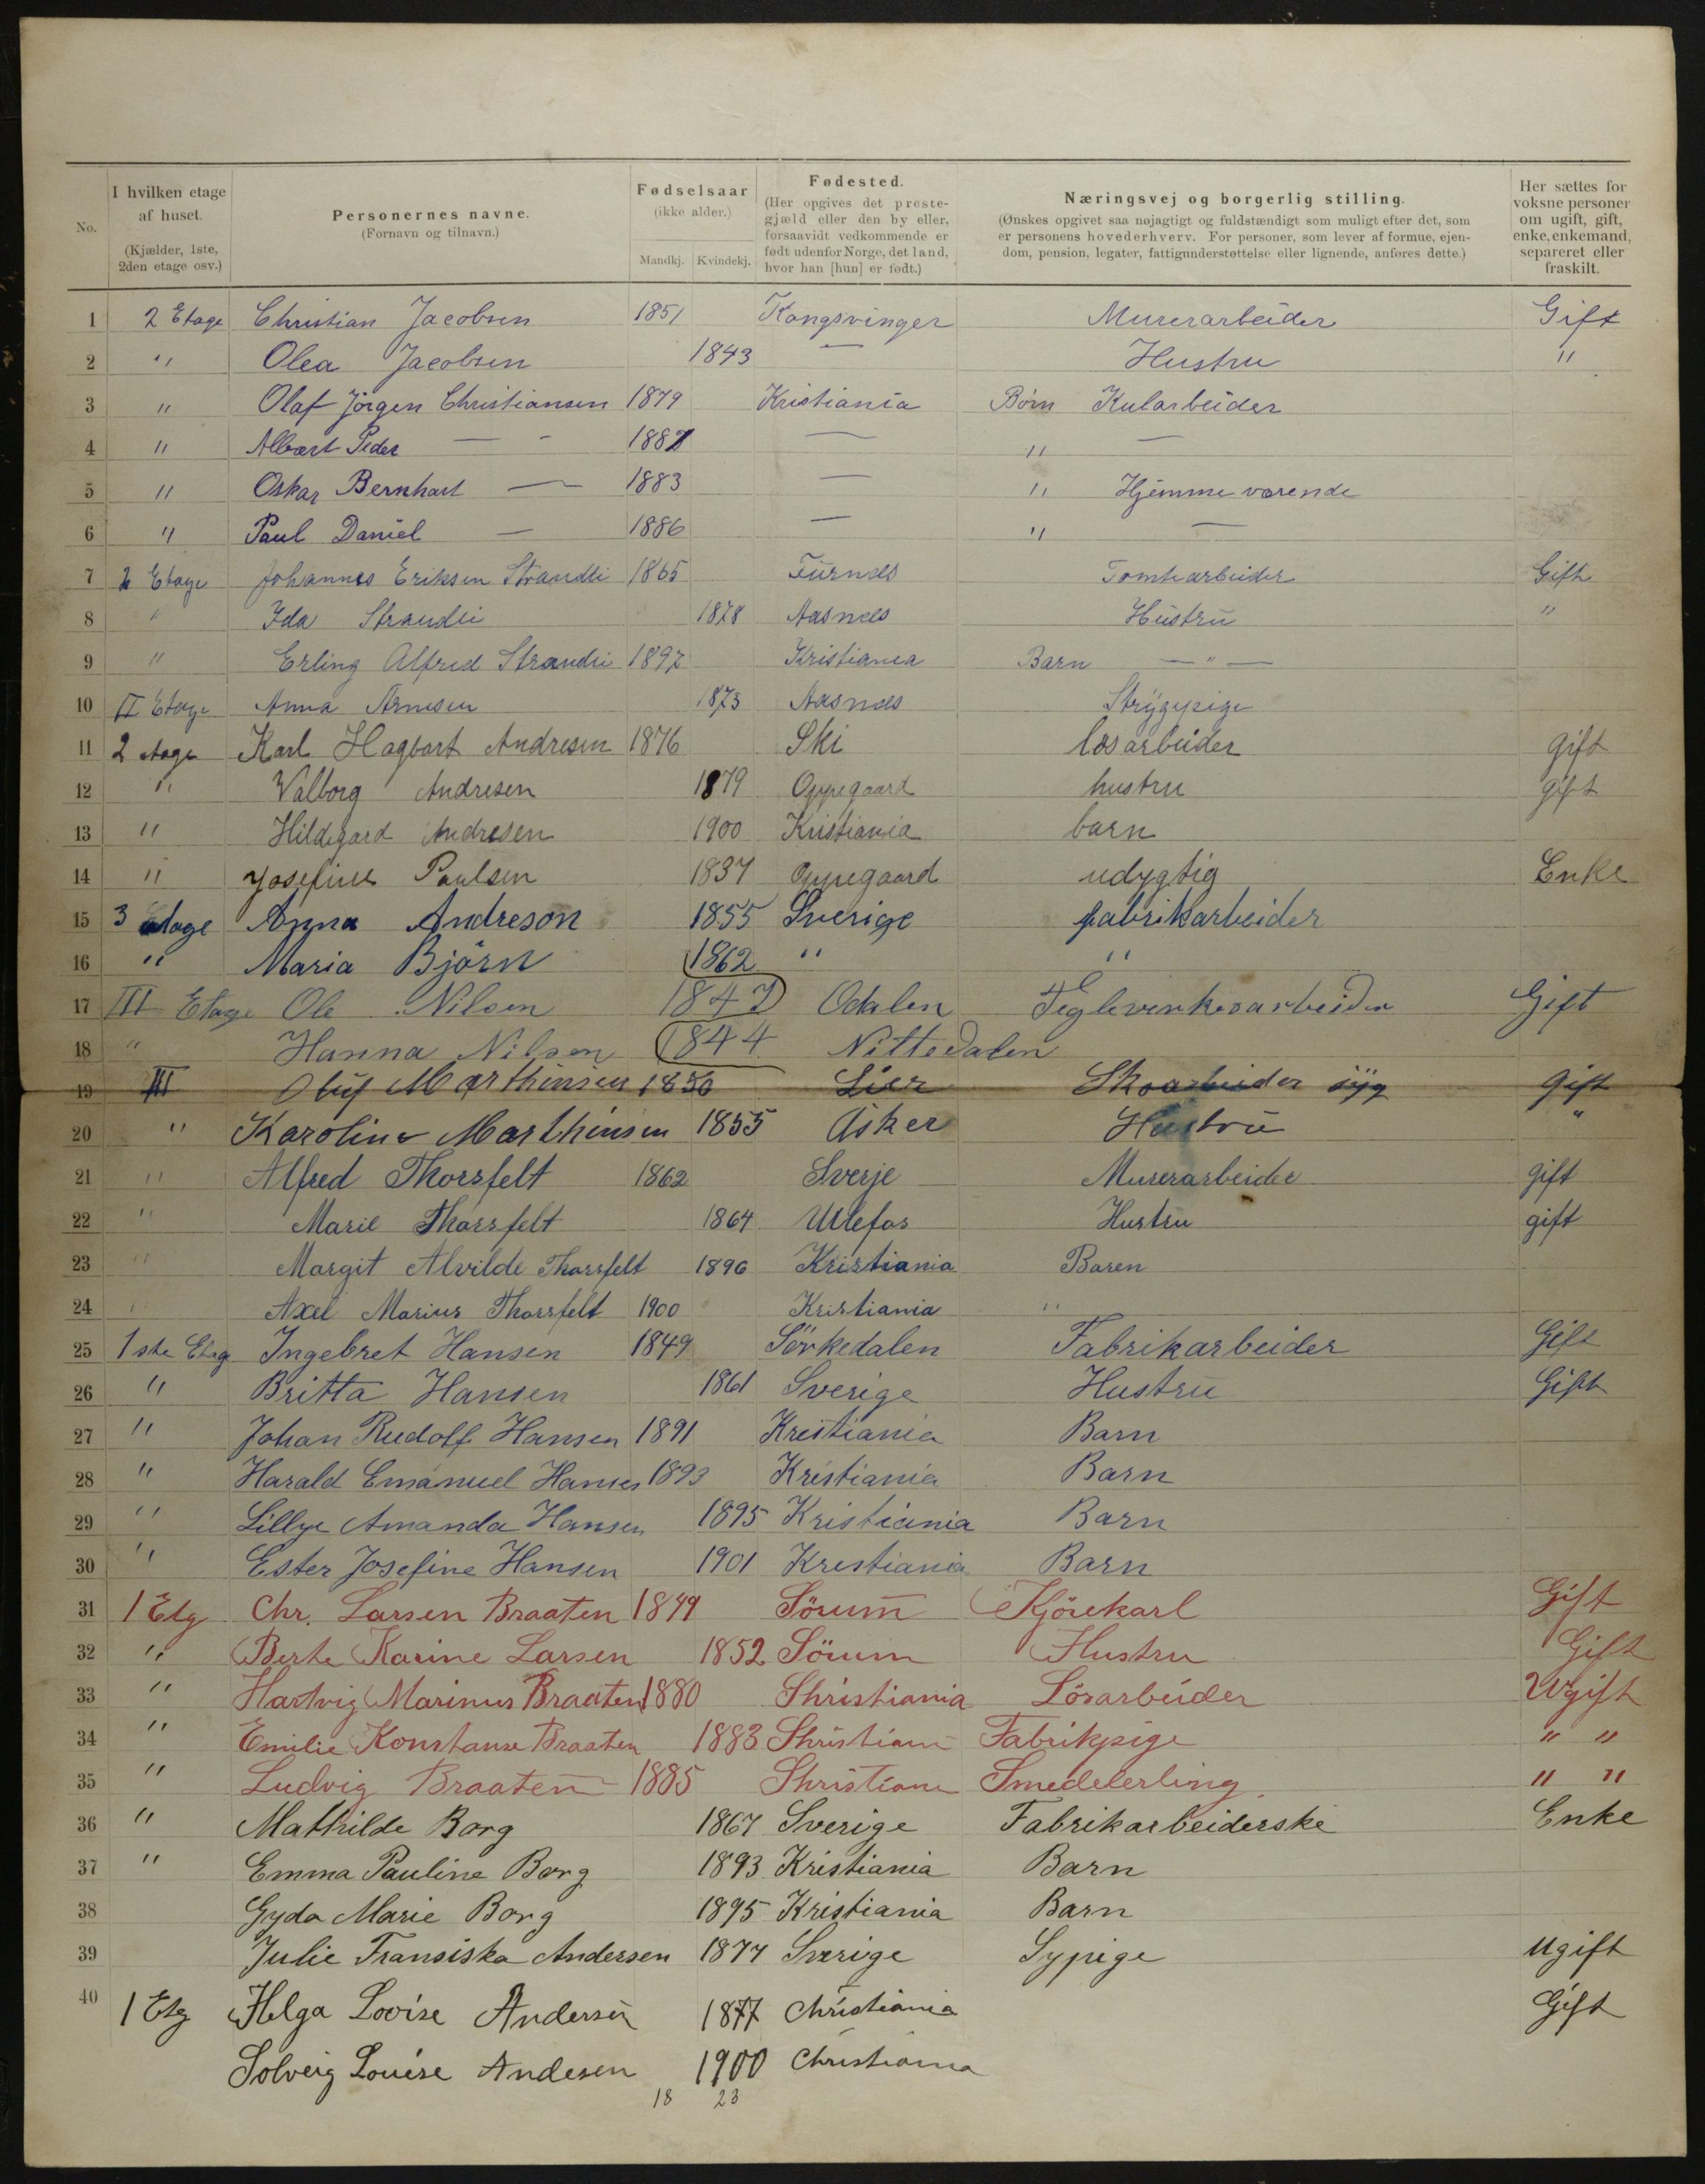 No.
I hvilken etage af huset. (Kjælder, 1ste, 2den etage osv.)
Personernes navne. (Fornavn og tilnavn.)
Fødselsaar (ikke alder.) Mandkj. Kvindekj.
Fødested. (Her opgives det prestegjæld eller den by eller, forsaavidt vedkommende er født udenfor Norge, det land, hvor han [hun] er født.)
Næringsvej og borgerlig stilling. (Ønskes opgivet saa nøjagtigt og fuldstændigt som muligt efter det, som er personens hovederhverv. For personer, som lever af formue, ejendom, pension, legater, fattigunderstøttelse eller lignende, anføres dette.)
Her sættes for voksne personer om ugift, gift, enke, enkemand, separeret eller fraskilt.
1 2 Etage Christian Jacobsen 1851 Kongsvinger Murerarbeider Gift
2 " Olea Jacobsen 1843 — Hustru "
3 " Olaf Jörgen Christiansen 1879 Kristiania Börn Kularbeider
4 " Albert Peder — - 1882 — " —
5 " Oskar Bernhart — 1883 — " Hjemme værende
6 " Paul Daniel — 1886 — " —
7 2 Etage Johannes Eriksen Strandli 1865 Furnæs Tomtearbeider Gift
8 " Ida Strandli 1878 Aasnæs Hustru "
9 " Erling Alfred Strandli 1897 Kristiania Barn — " —
10 II Etage Anna Arnesen 1873 Aasnæs Strygepige
11 2 etage Karl Hagbart Andresen 1876 Ski løsarbeider gift
12 " Valborg Andresen 1879 Oppegaard hustru gift
13 " Hildegard Andresen 1900 Kristiania barn
14 " Josefine Paulsen 1837 Oppegaard udygtig Enke
15 3 etage Anna Andreson 1855 Sverige fabrikarbeider
16 " Maria Björn 1862 " "
17 III Etage Ole Nilsen 1847 Odalen Teglverkesarbeider Gift
18 " Hanna Nilsen 1844 Nittedalen
19 III Oluf Marthinsen 1850 Lier Skoarbeider syg gift
20 " Karoline Marthinsen 1855 Asker Hustru "
21 " Alfred Thorsfelt 1862 Sverje Murerarbeider gift
22 " Marie Thorsfelt 1864 Ulefos Hustru gift
23 " Margit Alvilde Thorsfelt 1896 Kristiania Baren
24 " Axel Marius Thorsfelt 1900 Kristiania "
25 1ste Etag Ingebret Hansen 1849 Sörkedalen Fabrikarbeider Gift
26 " Britta Hansen 1861 Sverige Hustru Gift
27 " Johan Rudolf Hansen 1891 Kristiania Barn
28 " Harald Emanuel Hansen 1893 Kristiania Barn
29 " Lillye Amanda Hansen 1895 Kristiania Barn
30 " Ester Josefine Hansen 1901 Krestiania Barn
31 1 Etg Chr. Larsen Braaten 1849 Sörum Kjörekarl Gift
32 " Berte Karine Larsen 1852 Sörum Hustru Gift
33 " Hartvig Marinus Braaten 1880 Christiania Lösarbeider Ugift
34 " Emilie Konstanse Braaten 1883 Christiani Fabrikpige " "
35 " Ludvig Braaten 1885 Christiani Smedelerling " "
36 " Mathilde Borg 1867 Sverige Fabrikarbeiderske Enke
37 " Emma Pauline Borg 1893 Kristiania Barn
38 Gyda Marie Borg 1895 Kristiania Barn
39 Julie Fransiska Andersen 1877 Sverige Sypige Ugift
40 1 Etg Helga Lovise Andersen 1877 Christiania Gift
Solveig Louise Andesen 1900 Christiania
18 23